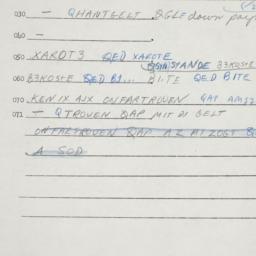 030 — QHANTGELT BGLE down pay
040 —
050 XAROT3 QED XAROTE
BGINSTANDE B3KOSTE
060 B3KOSTE QED B1... BITE QED BITE
070 KEN IX AIX ONFARTROUEN QAP
071 — QTROUEN QAP MIT DI GELT
ONFARTROUEN QAP AZ AI ZOGT
A SOD